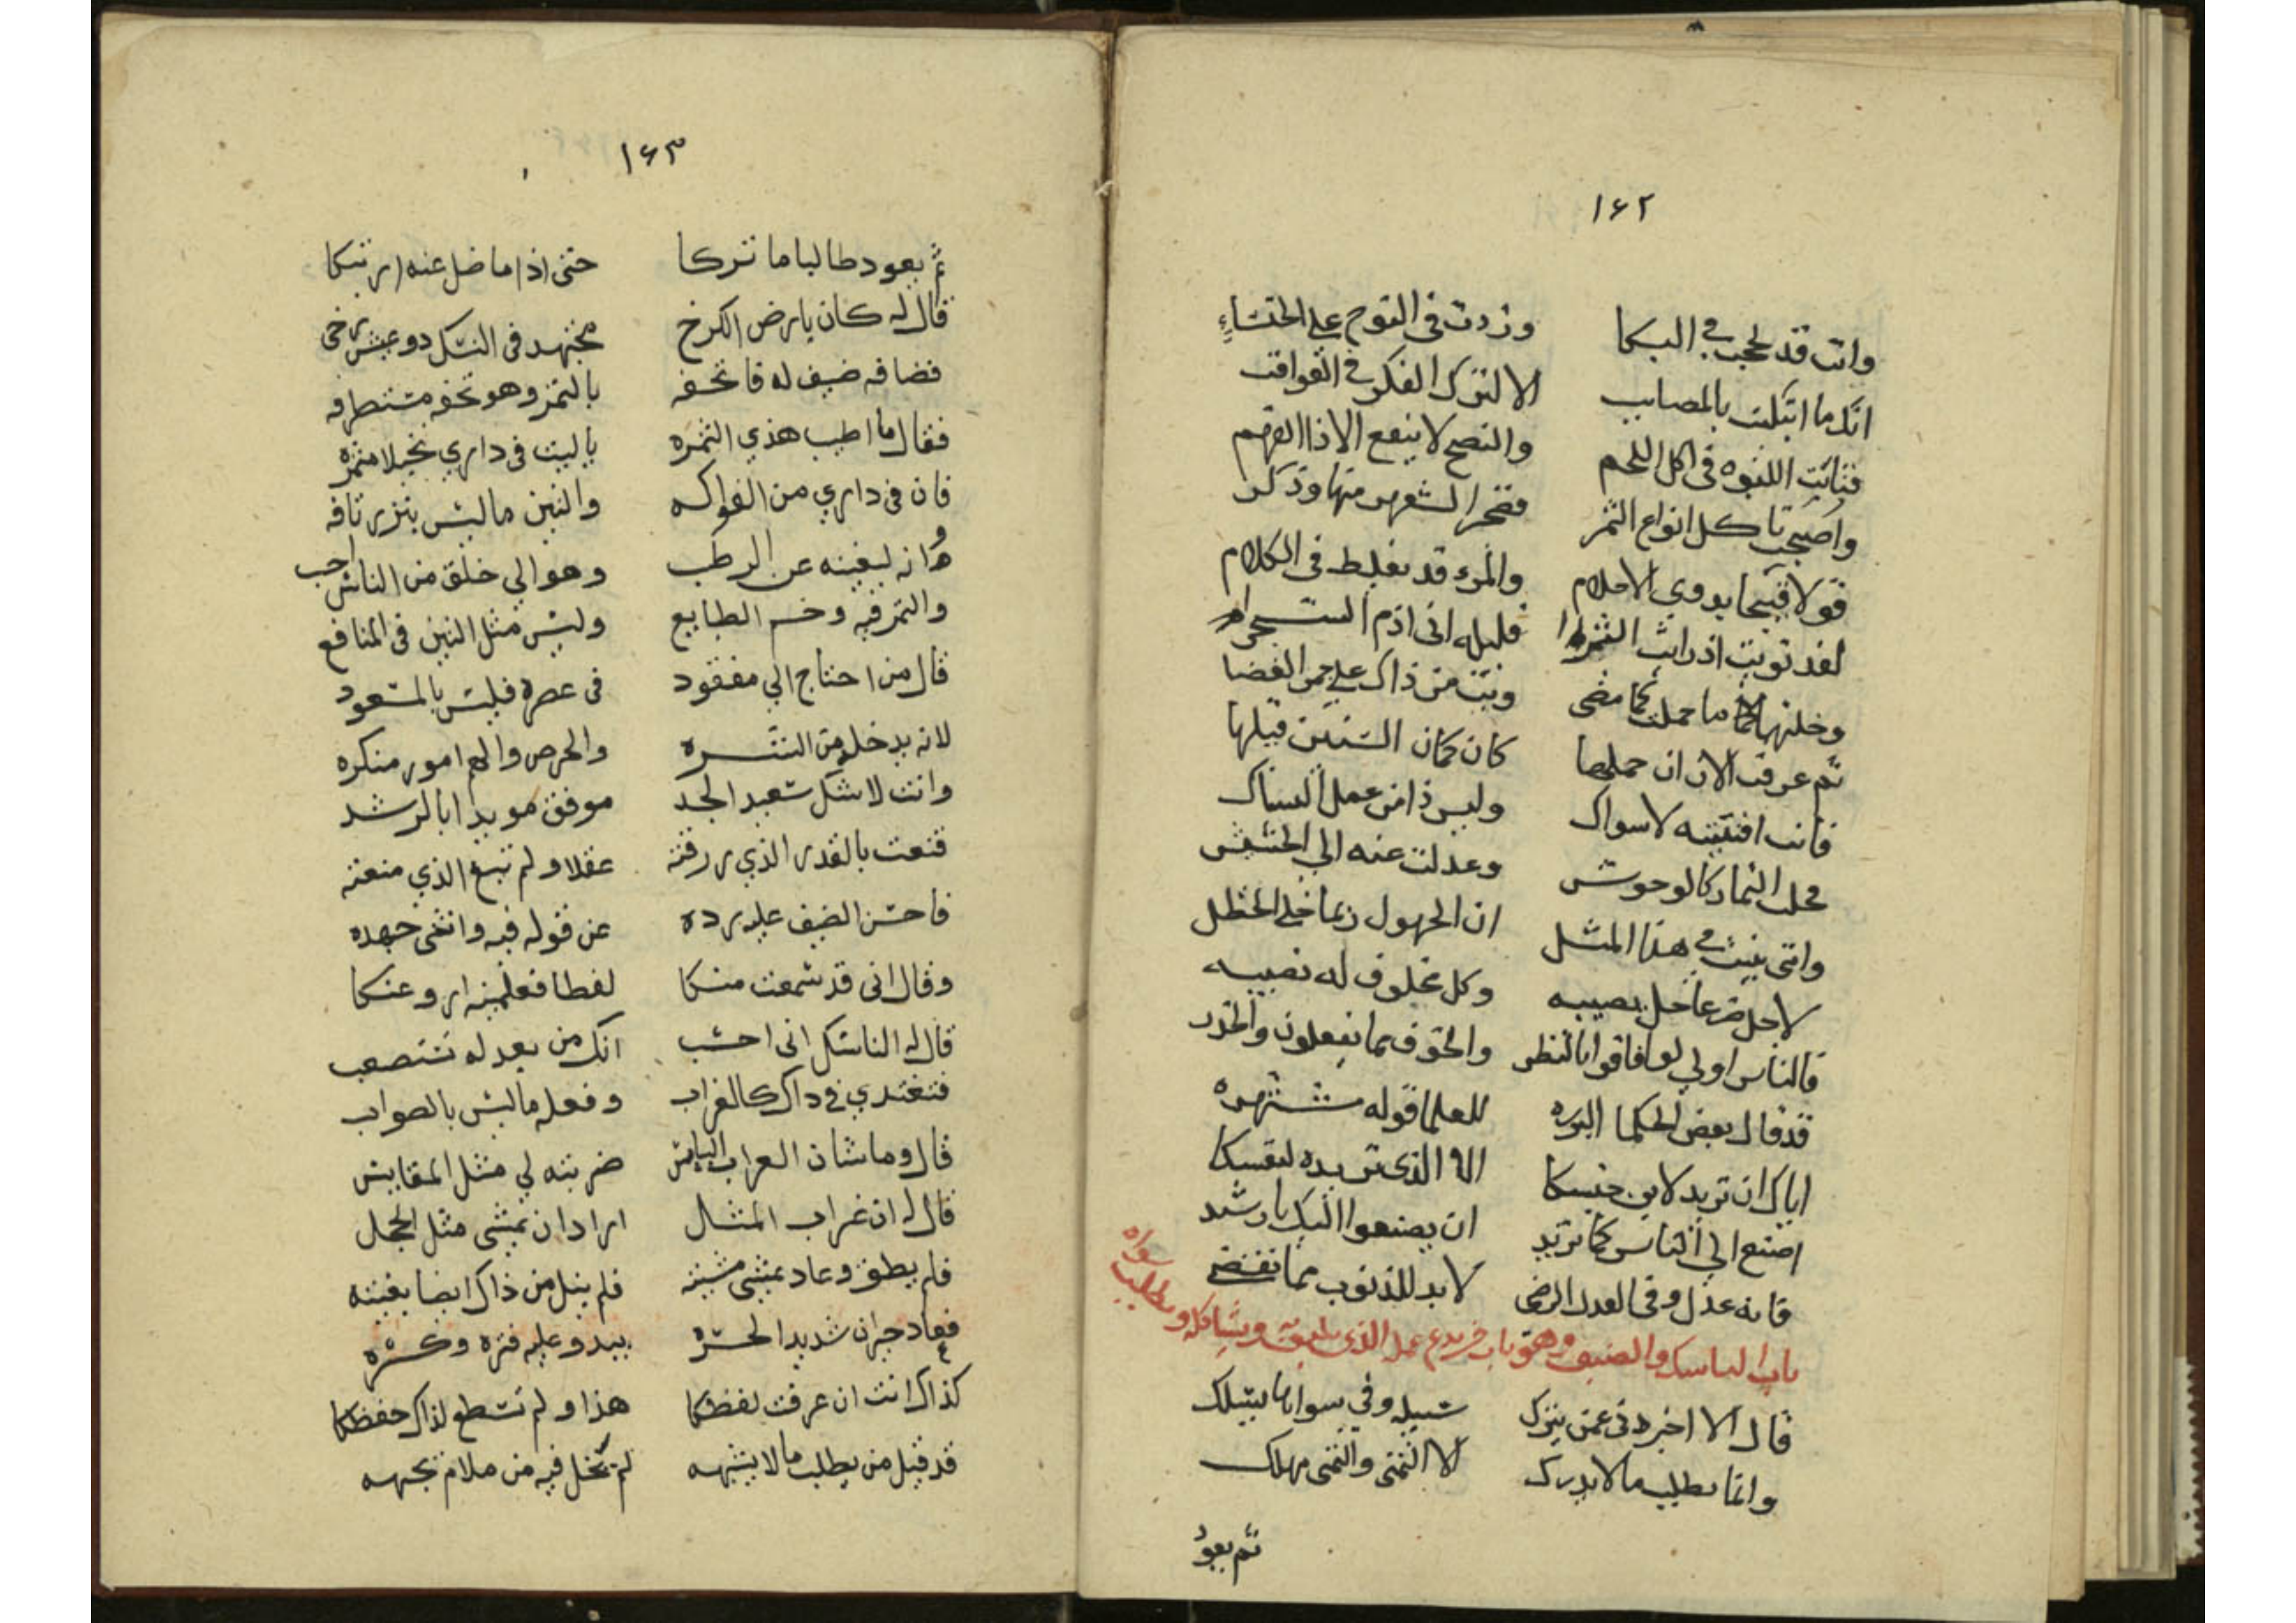 ١٦٢
وانت قد لججت في البكا وزدت في النوح على الخنساء
انك ما ابتليت بالمصايب الا لترك الفكر في العواقب
فتابت اللبوه في اكل اللحم والنصح لا ينفع الا ذا الفهم
واصبحت تاكل انواع الثمر فضجر الشعهر منها وذكر
قولا قبيحا بذوي الاحلام والمرء قد يغلط في الكلام
لقد نويت اذ رايت الثمرا قليله اني اذم الشجرا
وخلتها ما حملت كما مضى وبت من ذاك على جمر الغضا
ثم عرفت الان ان حملها كان كما كان السنين قبلها
فانت افنيته لا سواك وليس ذا من عمل النساك
محلت الثمار كالوحوش وعدلت عنه الى الحشيش
وانني بنيت في هذا المثل ان الجهول ربما خلى
لاجل ضر عاجل يصيبه وكل مخلوف له نصيبه
فالناس اولى لو افاقوا بالنظر والخوف مما يفعلون والحذر
قد قال بعض الحكما البرره للعلما قوله مشتهره
اياك ان تريد لابن جنسكا الا الذي تريده لنفسكا
اصنع الى الناس كما تريد ان يصنعوا اليك يا رشيد
فانه عدل وفي العدل الرضى لا بد للذنوب مما تقتضي
باب الناسك والضيف وهو باب من يدع عمل الذي يليق به ويشاكله ويطلب سواه
قال الا اخبرني عمن يترك سبيله وفي سواها يسلك
وانما يطلب ما لا يدرك الا التمني والتمني مهلك
ثم يعود
١٦٣
ثم يعود طالبا ما تركا حتى اذا ما ضل عنه ارتبكا
قال له كان بارض الكرخ مجتهد في النسك ذو عيش رخي
فضافه ضيف له فاتحفه بالتمر وهو تحفه مستطرفه
فقال ما اطيب هذي الثمره يا ليت في داري نخيلا مثمره
فان في داري من الفواكه والتين ما ليس بنزر تافه
وانه ليغنينه عن الرطب وهو الى خلق من الناس احب
والتمر فيه وخم الطبايع وليس مثل التين في المنافع
قال من احتاج الى مفقود في عصره فليس بالمسعود
لانه يدخل من الشره والحرص والهم امور منكره
وانت لا شك سعيد الجد موفق مويد بالرشد
قنعت بالقدر الذي رزقته عقلا ولم تبغ الذي منعته
فاحسن الضيف عليه رده عن قوله فيه وانتحى جهده
وقال اني قد سمعت منكا لفظا فعلمنيه ارو عنكا
قال له الناسك اني احسب انك من بعد له تستصعب
فتغتدي في ذاك كالغراب وفعله ما ليس بالصواب
قال وما شان الغراب البايس ضربته لي مثل المقايس
قال له ان غراب المثل اراد ان يمشي مثل الحجل
فلم يطق وعاد يمشي مشيته فلم ينل من ذاك ايضا بغيته
فعاد حيران شديد الحسره يبدو عليه فتره وكسره
كذاك انت ان عرفت لفظكا هذا ولم تسطع لذاك حفظكا
قد قيل من يطلب ما لا يشبهه لم يخل فيه من ملام يجبهه